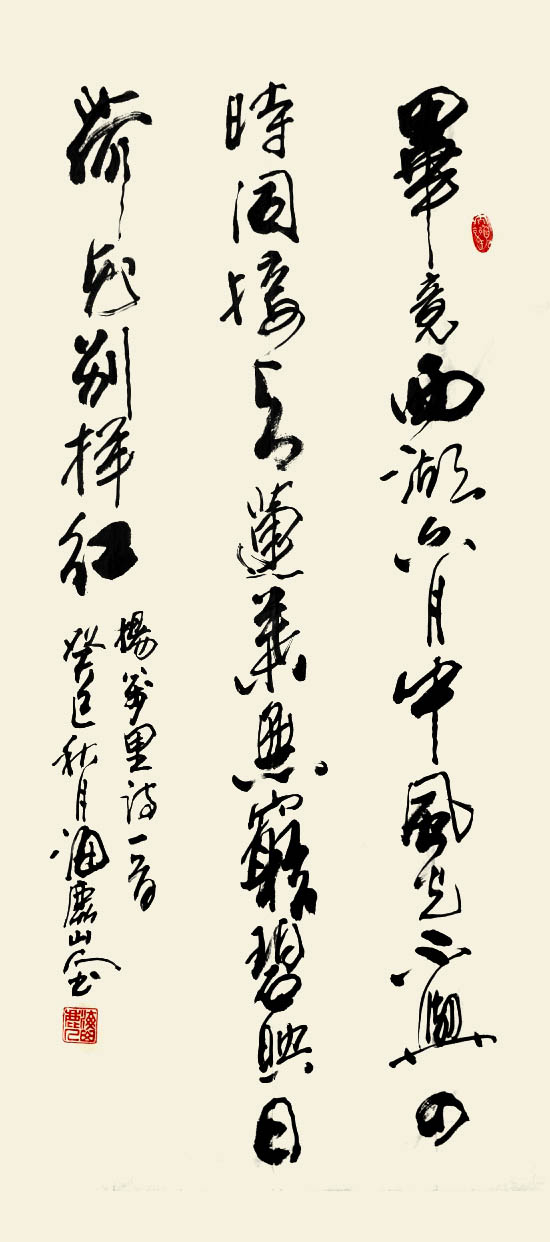 畢竟西湖六月中風光不與四
時同接天蓮葉無窮碧映日
荷花别样红
楊萬里詩一首
癸巳秋月海鹿山